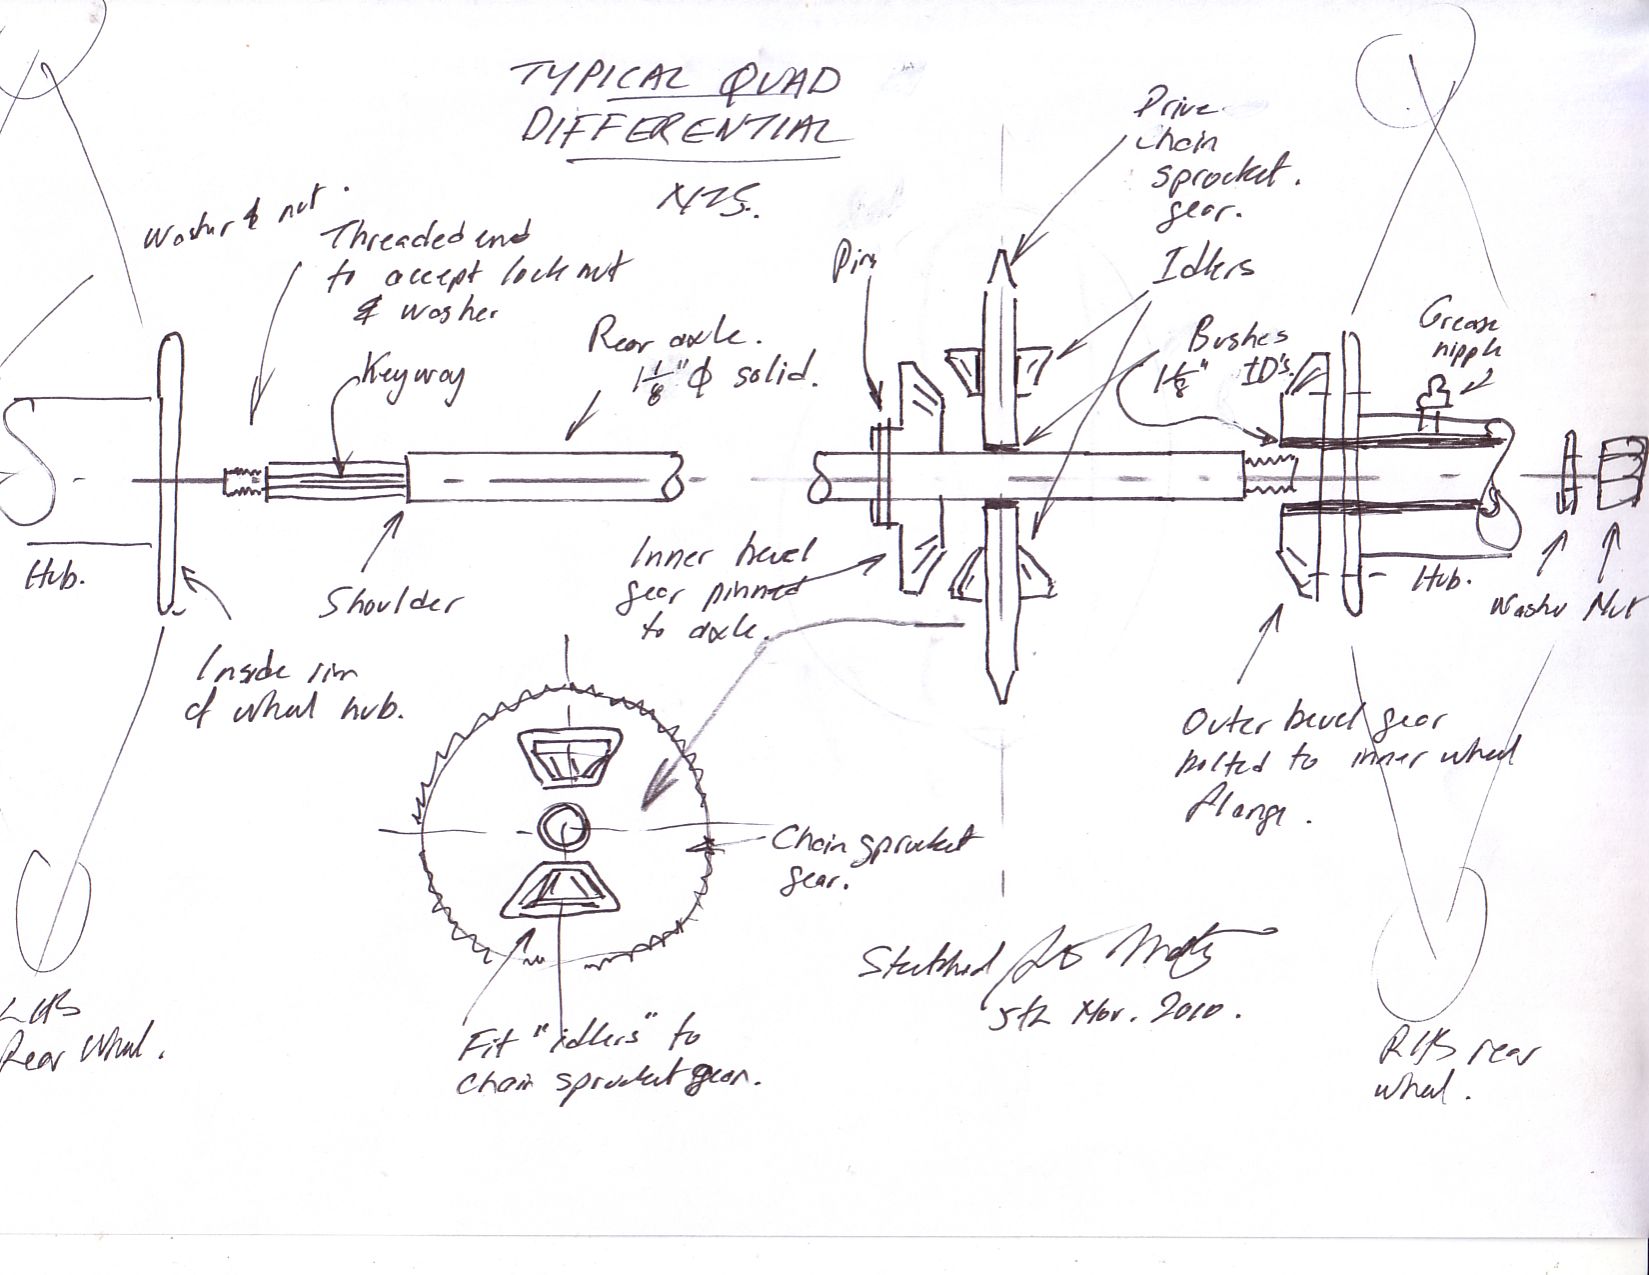 TYPICAL QUAD
DIFFERENTIAL
NTS.
Washer & nut.
Threaded end
to accept lock nut
& washer
Keyway
Rear axle.
1 1/8" Φ solid.
Pin
Drive
chain
sprocket.
gear.
Idlers
Bushes
1 1/8" ID's.
Grease
nipple
Hub.
Shoulder
Inside rim
of wheel hub.
Inner bevel
gear pinned
to axle.
Hub.
Washer
Nut
Outer bevel gear
bolted to inner wheel
flange.
Chain sprocket
gear.
Fit "idlers" to
chain sprocket gear.
Sketched
5th Mar. 2010.
LHS
Rear Wheel.
RHS rear
wheel.